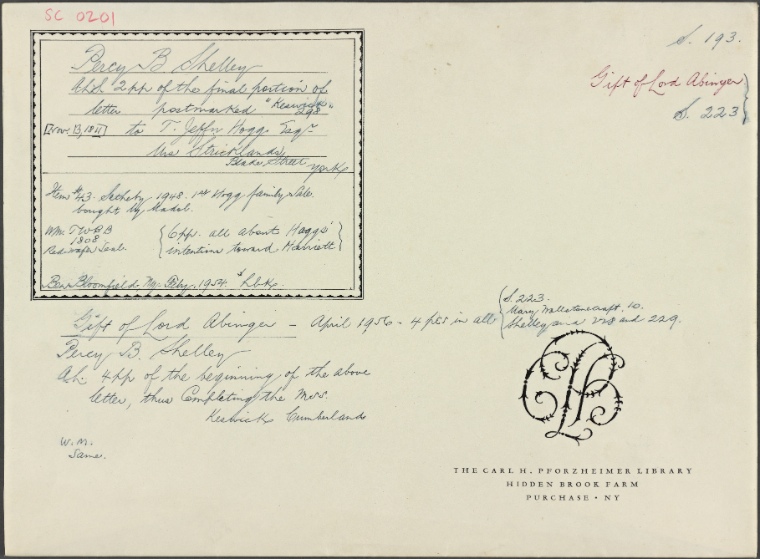 SC 0201
S. 193.
Gift of Lord Abinger
S. 223
Percy B Shelley
A.L.S. 2pp of the final portion of
letter postmarked "Keswick
298"
[Nov. 13, 1811] to T. Jeffn Hogg Esqr
Mrs Stricklands,
Blake Street
York
Item #43. Sotheby 1948. 1st Hogg family Sale.
bought by
Wm. TW & B
1808
Red wafer Seal.
{6pp. all about Hoggs'
intention toward Harriett}
Ben Bloomfield. NY. Feby. 1954.
Gift of Lord Abinger - April 1956 - 4 pcs in all
{S. 223.
Mary Wollstonecraft. 10.
Shelleyana 228 and 229.
Percy B. Shelley
4pp of the beginning of the above
letter, thus Completing the Mss.
Keswick Cumberland
W.M.
Same.
THE CARL H. PFORZHEIMER LIBRARY
HIDDEN BROOK FARM
PURCHASE • NY